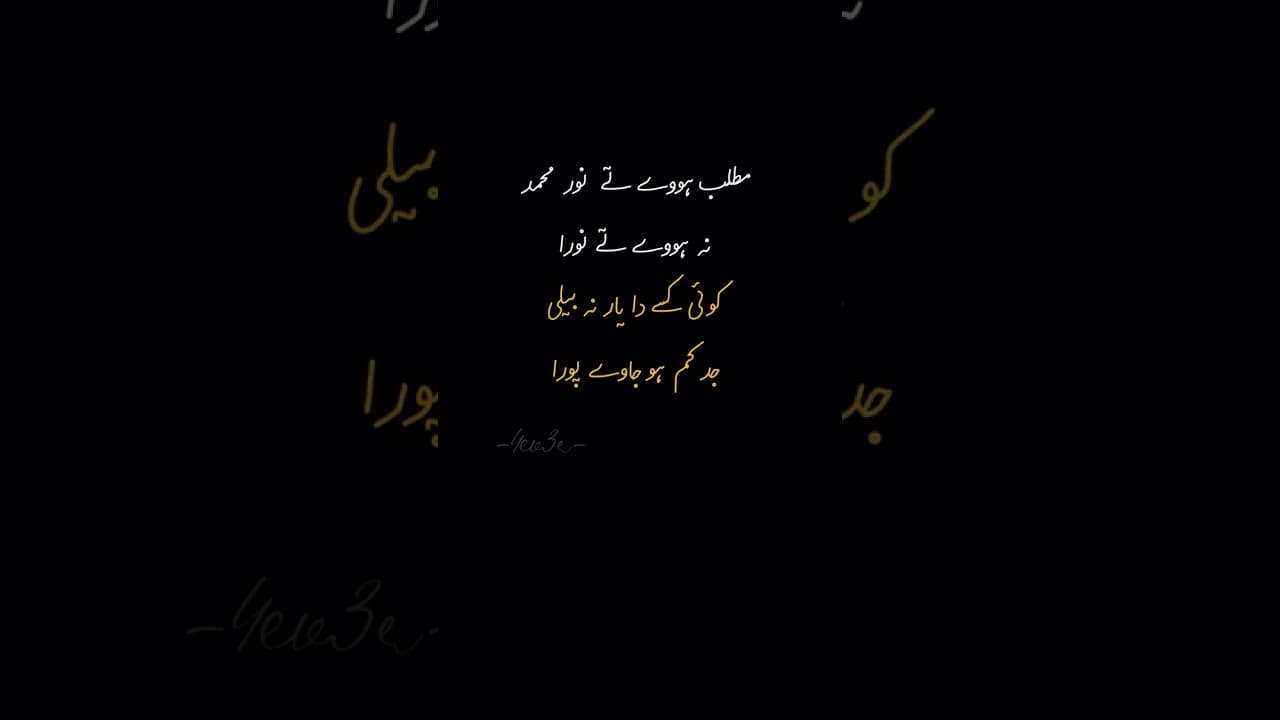 مطلب ہووے تے نور محمد
نہ ہووے تے نورا
کوئی کسے دا یار نہ بیلی
جد کم ہو جاوے پورا